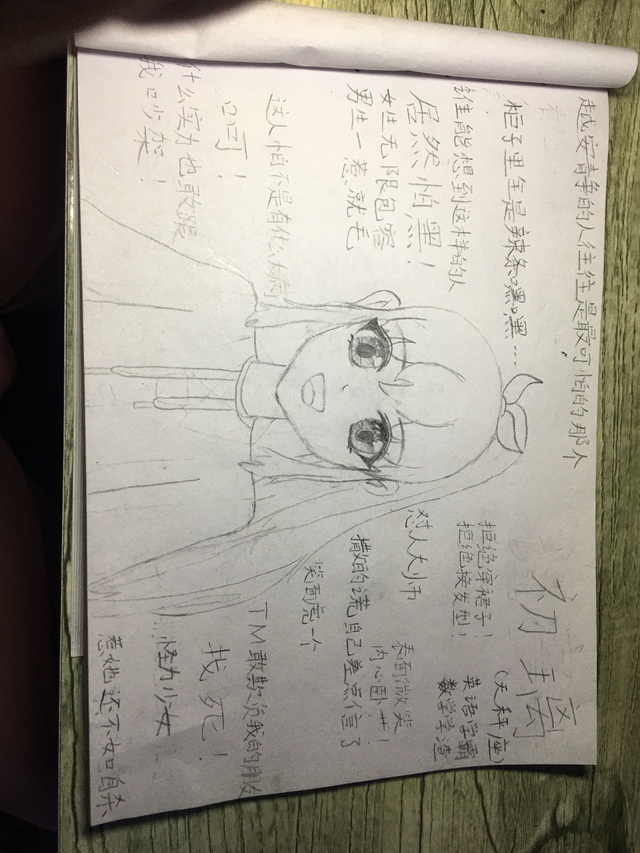 越安静的人往往是最可怕的那个
柜子里全是辣条嘿嘿…
谁能想到这样的人
居然怕黑！
女性无限包容
男生一惹就毛
这人怕不是有什么大病
呵！
什么实力也敢跟
我吵架！
初璃
(天秤座)
英语学霸
数学学渣
拒绝穿裙子！
拒绝换发型！
怼人大师
表面微笑
内心卧艹！
的谎自己差点信了
笑面虎一个
TM敢欺负我的朋友
找死！
怪力少女
惹她还不如自杀